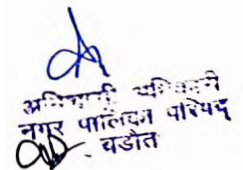 अधिशासी अधिकारी
नगर पालिका परिषद
बडौत